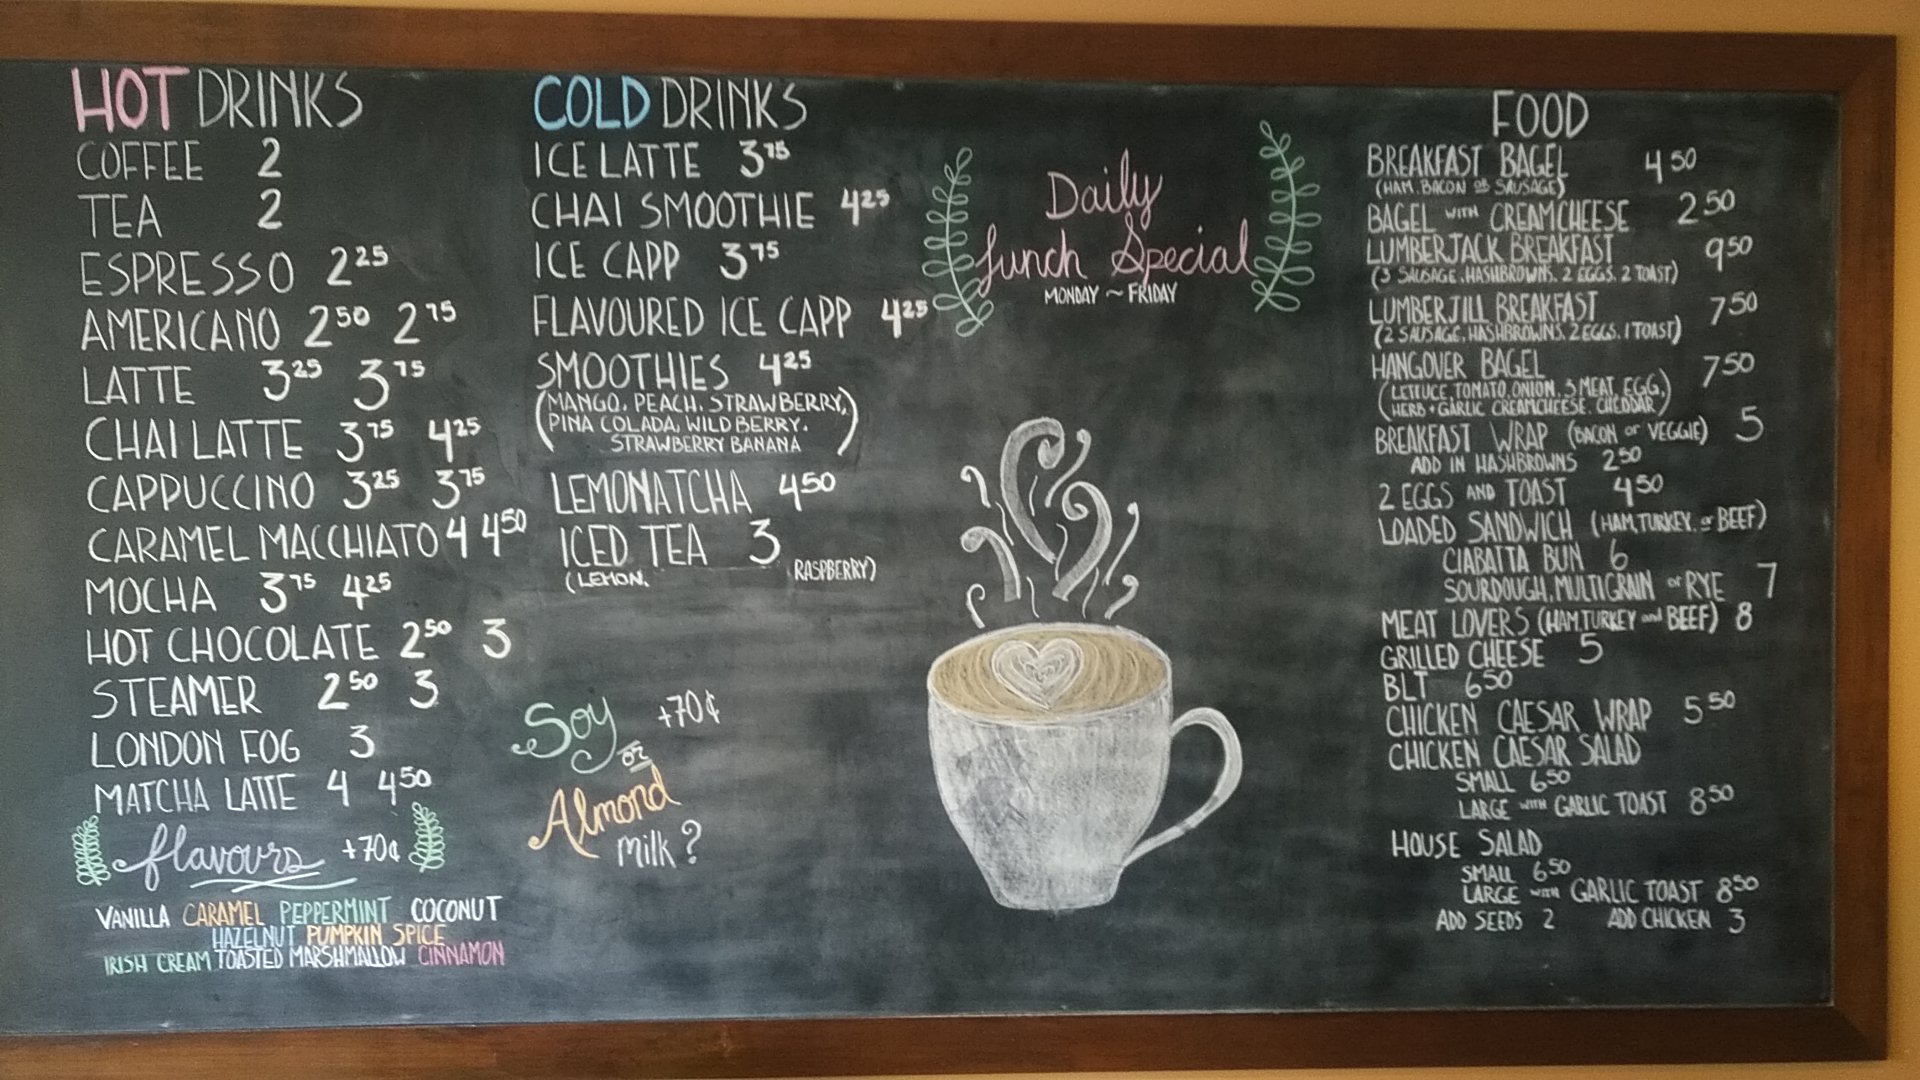 HOT DRINKS
COFFEE 2
TEA 2
ESPRESSO 2 25
AMERICANO 2 50 2 75
LATTE 3 25 3 75
CHAI LATTE 3 75 4 25
CAPPUCCINO 3 25 3 75
CARAMEL MACCHIATO 4 4 50
MOCHA 3 75 4 25
HOT CHOCOLATE 2 50 3
STEAMER 2 50 3
LONDON FOG 3
MATCHA LATTE 4 4 50
flavours +70¢
VANILLA CARAMEL PEPPERMINT COCONUT
HAZELNUT PUMPKIN SPICE
IRISH CREAM TOASTED MARSHMALLOW CINNAMON
COLD DRINKS
ICE LATTE 3 75
CHAI SMOOTHIE 4 25
ICE CAPP 3 75
FLAVOURED ICE CAPP 4 25
SMOOTHIES 4 25
(MANGO, PEACH, STRAWBERRY,
PINA COLADA, WILD BERRY,
STRAWBERRY BANANA)
LEMONATCHA 4 50
ICED TEA 3
(LEMON, RASPBERRY)
Soy +70¢
or
Almond
milk?
Daily
Lunch Special
MONDAY ~ FRIDAY
FOOD
BREAKFAST BAGEL 4 50
(HAM, BACON OR SAUSAGE)
BAGEL WITH CREAMCHEESE 2 50
LUMBERJACK BREAKFAST 9 50
(3 SAUSAGE, HASHBROWNS, 2 EGGS, 2 TOAST)
LUMBERJILL BREAKFAST 7 50
(2 SAUSAGE, HASHBROWNS, 2 EGGS, 1 TOAST)
HANGOVER BAGEL 7 50
(LETTUCE, TOMATO, ONION, 3 MEAT, EGG,
HERB + GARLIC CREAMCHEESE, CHEDDAR)
BREAKFAST WRAP (BACON or VEGGIE) 5
ADD IN HASHBROWNS 2 50
2 EGGS AND TOAST 4 50
LOADED SANDWICH (HAM, TURKEY, or BEEF)
CIABATTA BUN 6
SOURDOUGH, MULTIGRAIN or RYE 7
MEAT LOVERS (HAM TURKEY and BEEF) 8
GRILLED CHEESE 5
BLT 6 50
CHICKEN CAESAR WRAP 5 50
CHICKEN CAESAR SALAD
SMALL 6 50
LARGE WITH GARLIC TOAST 8 50
HOUSE SALAD
SMALL 6 50
LARGE WITH GARLIC TOAST 8 50
ADD SEEDS 2 ADD CHICKEN 3